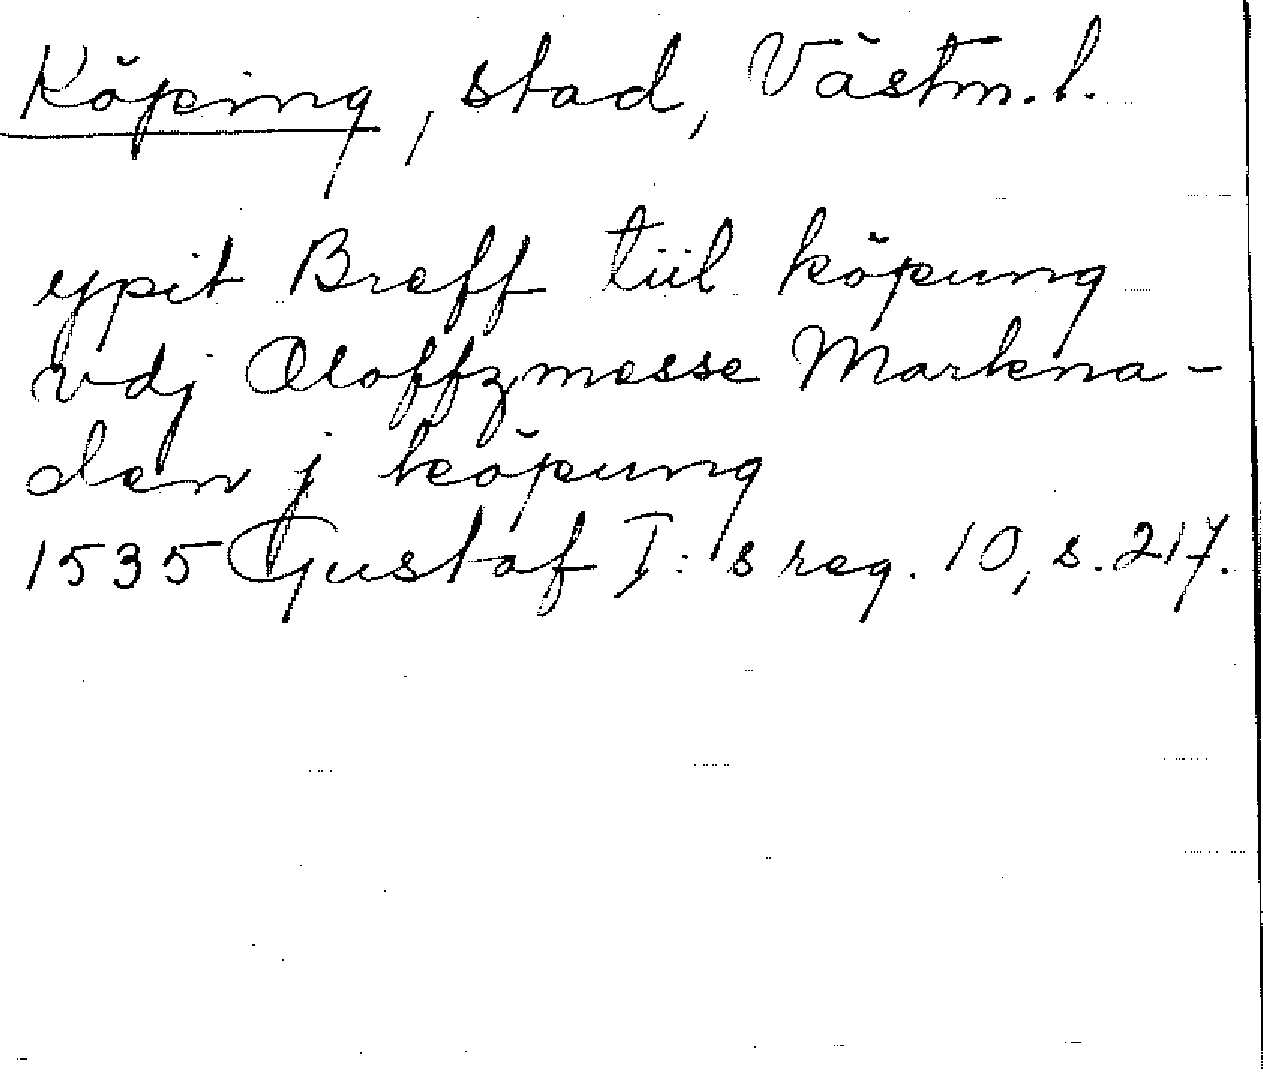 Köping, stad, Västm. l.
ypit Breff tiil köpung
vdj Oloffzmesse Markna-
den j köpung
1535 Gustaf I:s reg. 10, s. 217.